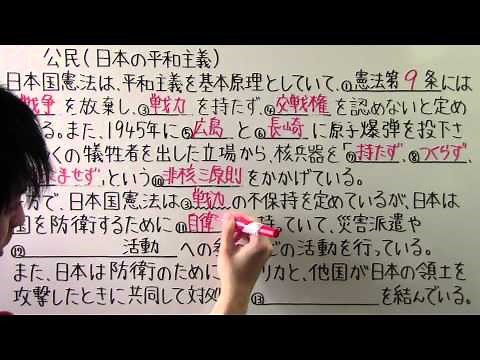 公民(日本の平和主義)
日本国憲法は、平和主義を基本原理としていて、①憲法第9条には
戦争を放棄し、③戦力を持たず、④交戦権を認めないと定め
る。また、1945年に⑤広島と⑥長崎に原子爆弾を投下さ
くの犠牲者を出した立場から、核兵器を「⑦持たず、⑧つくらず、
ませず」という⑩非核三原則をかかげている。
方で、日本国憲法は③戦力の不保持を定めているが、日本は
国を防衛するために⑪自衛 持っていて、災害派遣や
⑫ 活動への どの活動を行っている。
また、日本は防衛のために リカと、他国が日本の領土を
攻撃したときに共同して対処 ⑬ を結んでいる。